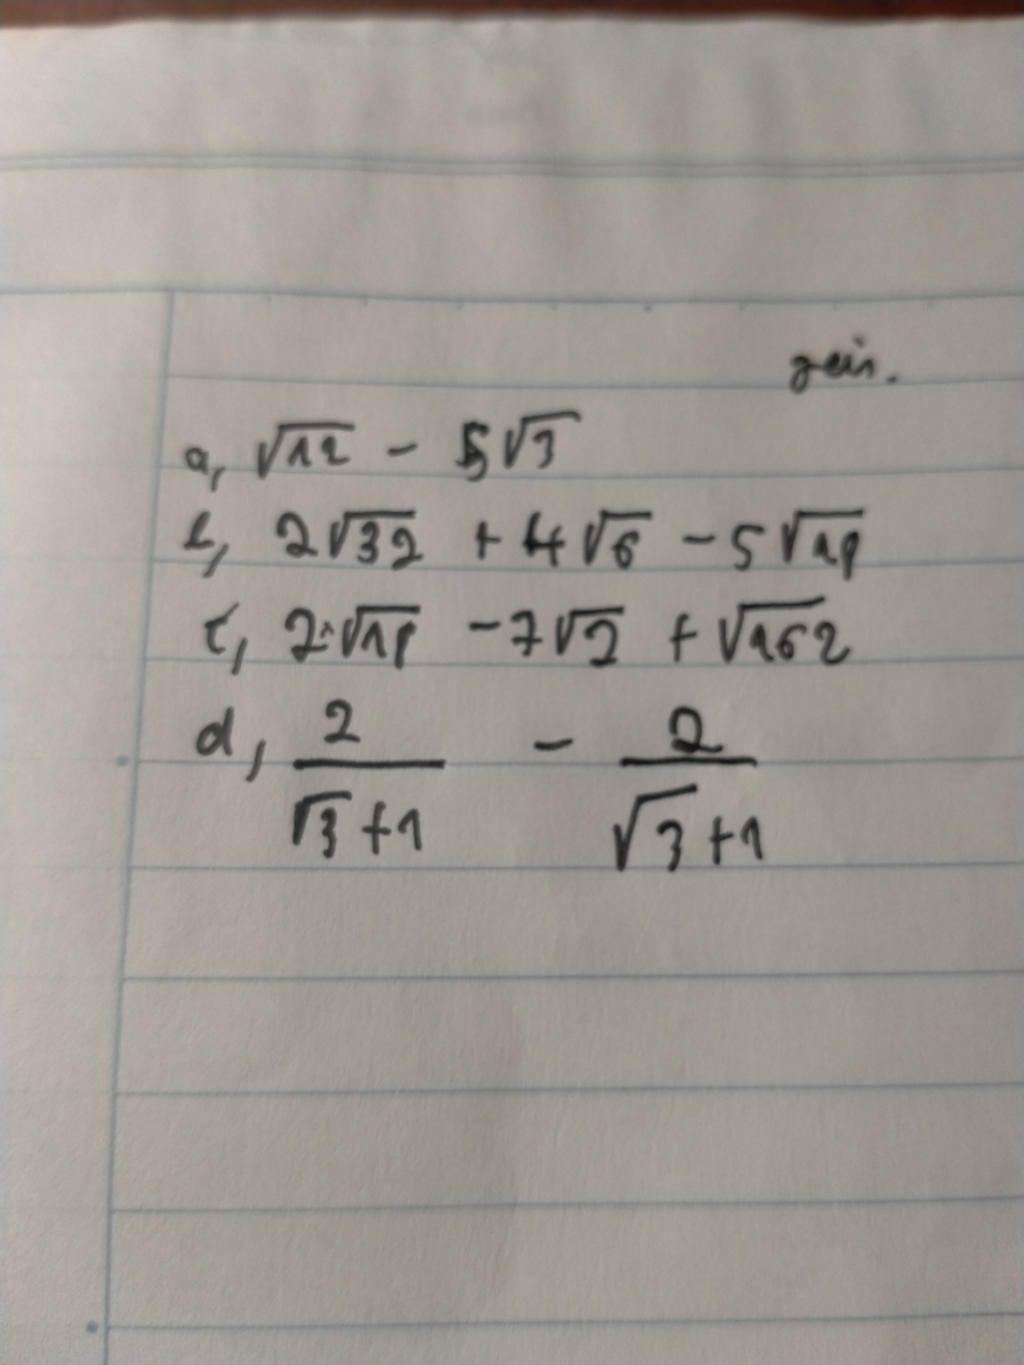 a, √12 - 5√3
b, 2√32 + 4√6 - 5√18
c, 2√18 - 7√2 + √162
d, 2/(√3+1) - 2/(√3+1)